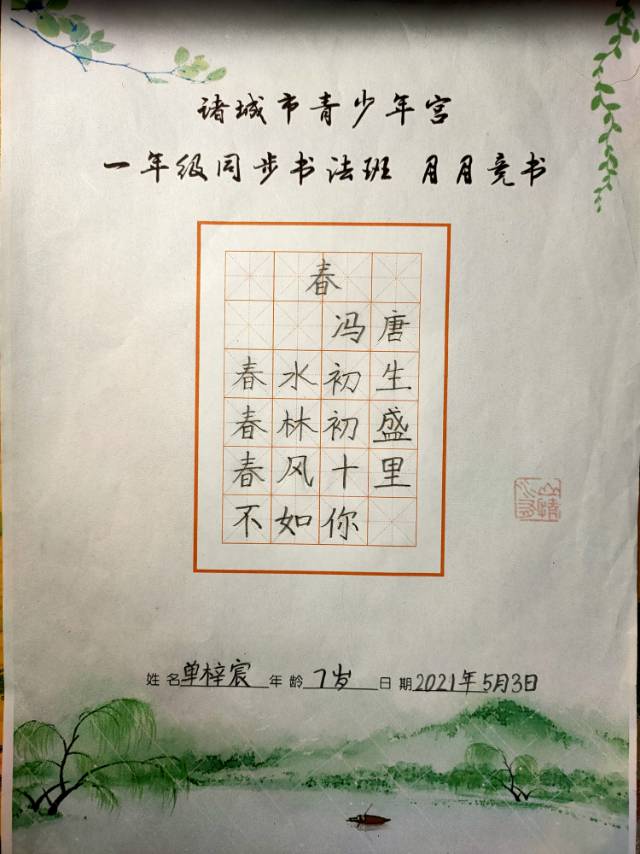 诸城市青少年宫
一年级同步书法班 月月竞书
春
冯唐
春水初生
春林初盛
春风十里
不如你
姓名单梓宸年龄7岁日期2021年5月3日